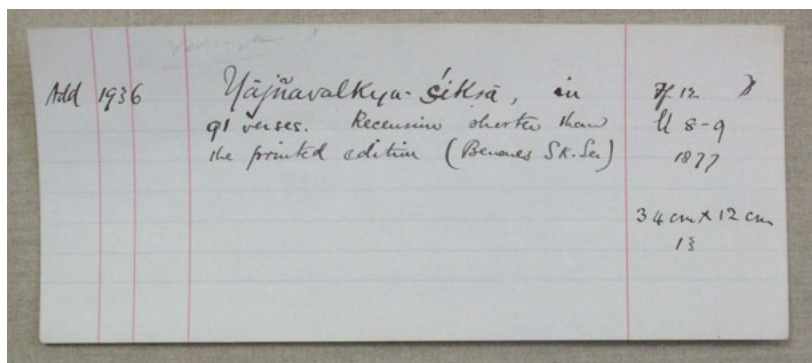 Add 1936 Yājñavalkya-Śikṣā, in ff 12
91 verses. Recension shorter than ll 8-9
the printed edition (Benares Sk. Ser) 1877
34 cm x 12 cm
13